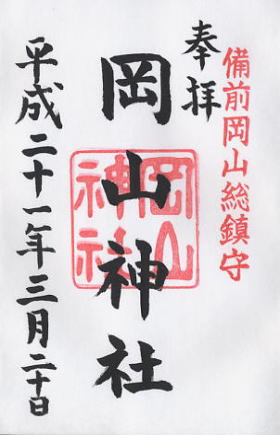 備前岡山総鎮守
奉拝
岡山神社
岡山
神社
平成二十一年三月二十日